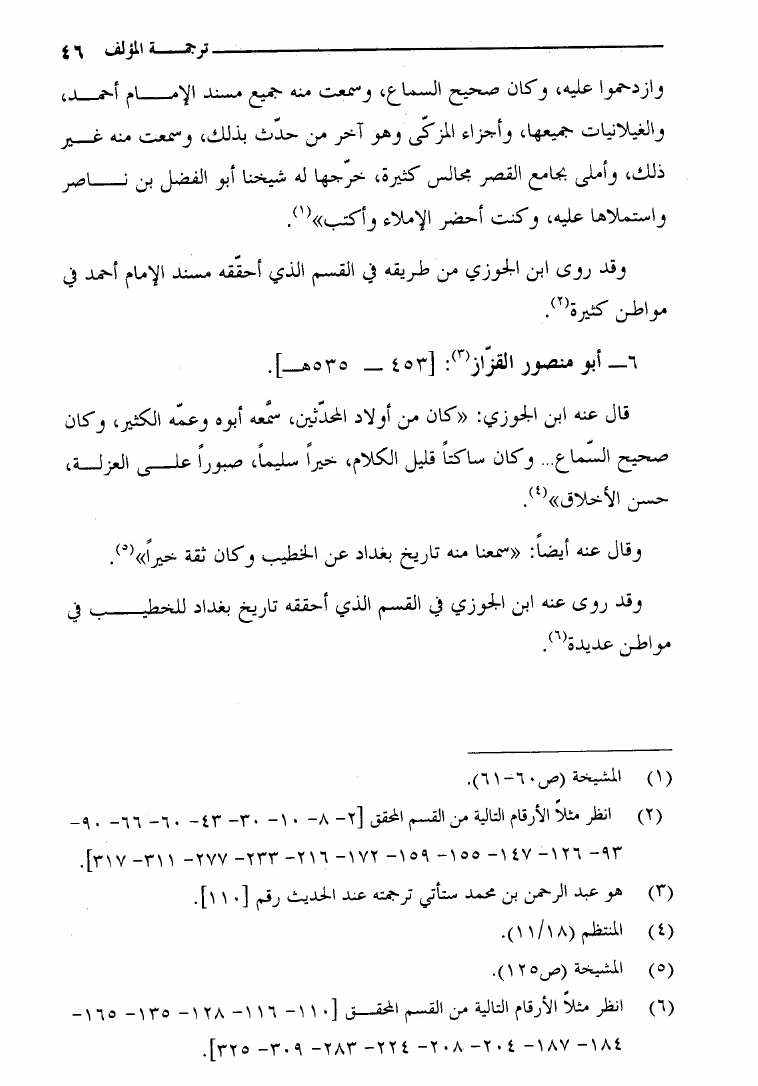 ترجمة المؤلف ٤٦
وازدحموا عليه، وكان صحيح السماع، وسمعت منه جميع مسند الإمام أحمد،
والغيلانيات جميعها، وأجزاء المزكّى وهو آخر من حدّث بذلك، وسمعت منه غير
ذلك، وأملى بجامع القصر مجالس كثيرة، خرّجها له شيخنا أبو الفضل بن ناصر
واستملاها عليه، وكنت أحضر الإملاء وأكتب»(١).
وقد روى ابن الجوزي من طريقه في القسم الذي أحقّقه مسند الإمام أحمد في
مواطن كثيرة(٢).
٦ــ أبو منصور القزّاز(٣): [٤٥٣ ــ ٥٣٥هـ].
قال عنه ابن الجوزي: «كان من أولاد المحدّثين، سمَّعه أبوه وعمّه الكثير، وكان
صحيح السّماع... وكان ساكتاً قليل الكلام، خيراً سليماً، صبوراً على العزلة،
حسن الأخلاق»(٤).
وقال عنه أيضاً: «سمعنا منه تاريخ بغداد عن الخطيب وكان ثقة خيراً»(٥).
وقد روى عنه ابن الجوزي في القسم الذي أحققه تاريخ بغداد للخطيب في
مواطن عديدة(٦).
(١) المشيخة (ص٦٠-٦١).
(٢) انظر مثلاً الأرقام التالية من القسم المحقق [٢- ٨- ١٠- ٣٠- ٤٣- ٦٠- ٦٦- ٩٠-
٩٣- ١٢٦- ١٤٧- ١٥٥- ١٥٩- ١٧٢- ٢١٦- ٢٣٣- ٢٧٧- ٣١١- ٣١٧].
(٣) هو عبد الرحمن بن محمد ستأتي ترجمته عند الحديث رقم [١١٠].
(٤) المنتظم (١١/١٨).
(٥) المشيخة (ص١٢٥).
(٦) انظر مثلاً الأرقام التالية من القسم المحقق [١١٠- ١١٦- ١٢٨- ١٣٥- ١٦٥-
١٨٤- ١٨٧- ٢٠٤- ٢٠٨- ٢٢٤- ٢٨٣- ٣٠٩- ٣٢٥].